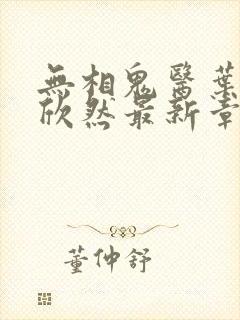 無相鬼醫葉
欣然最新章
董仲舒